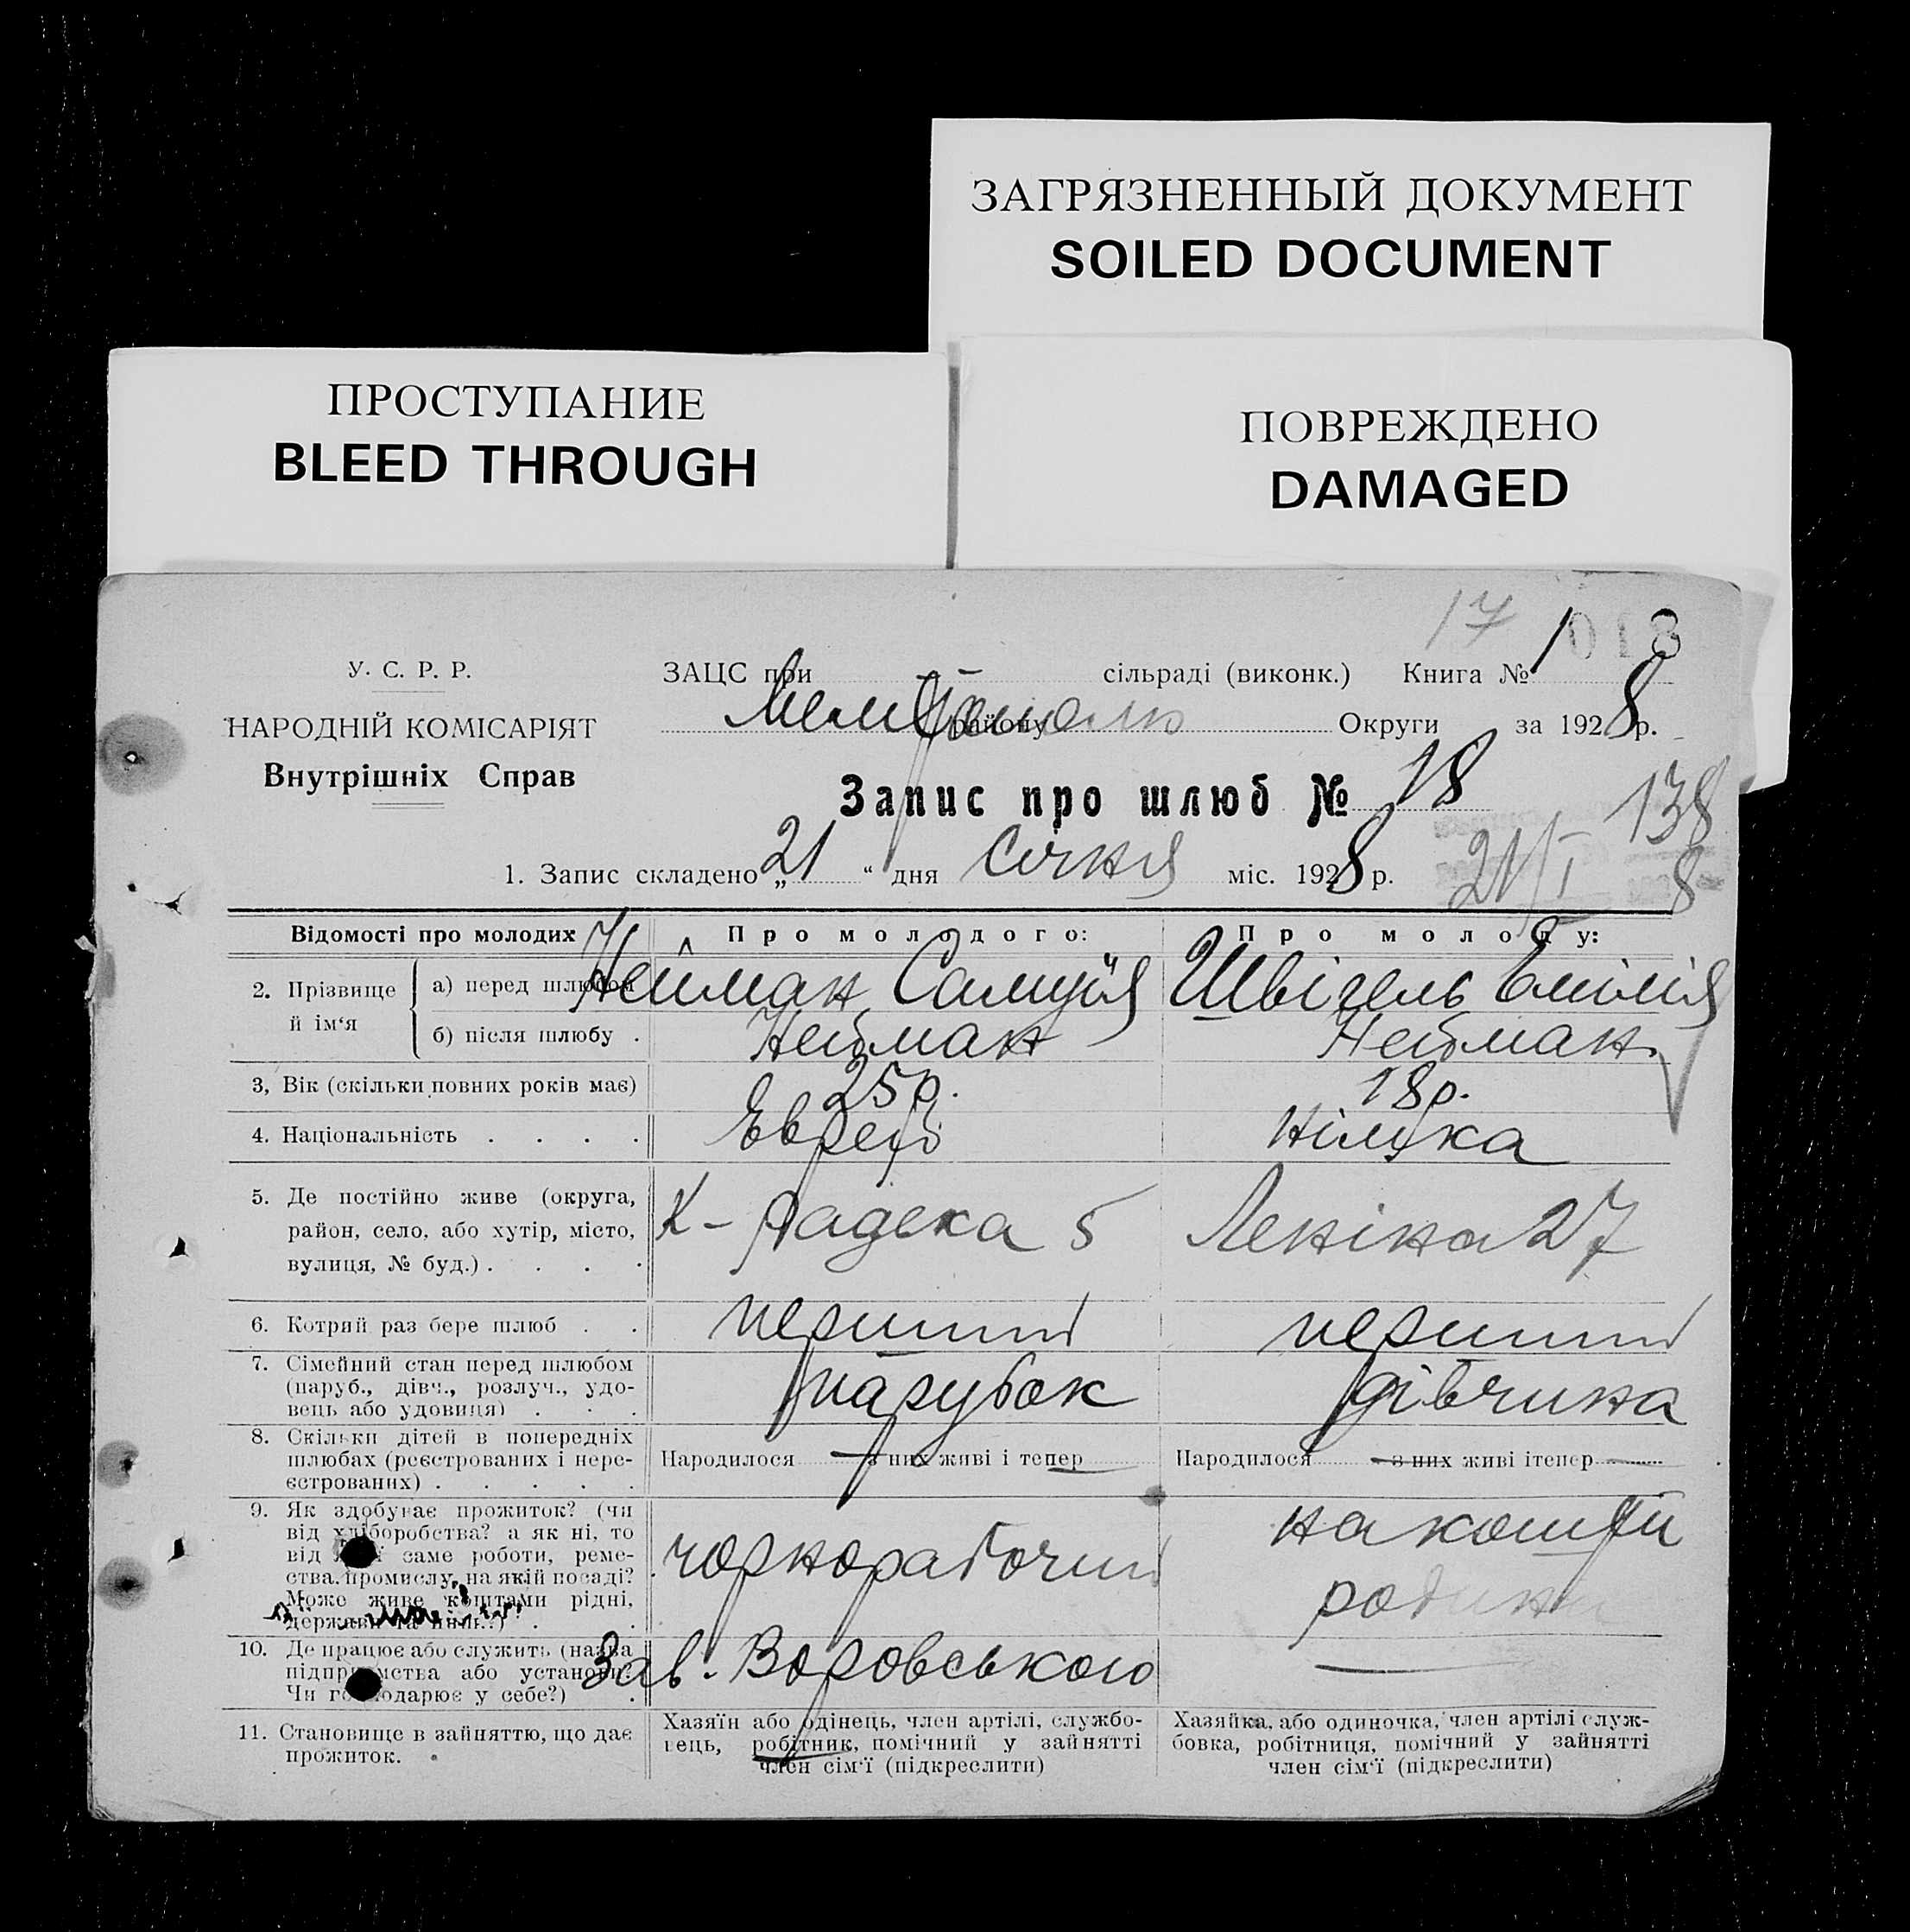 ЗАГРЯЗНЕННЫЙ ДОКУМЕНТ
SOILED DOCUMENT
ПРОСТУПАНИЕ
BLEED THROUGH
ПОВРЕЖДЕНО
DAMAGED
17
018
У. С. Р. Р.
НАРОДНІЙ КОМІСАРІЯТ
Внутрішніх Справ
ЗАЦС при сільраді (виконк.) Книга № 1
району Округи за 1928 р.
Запис про шлюб № 18
138
1. Запис складено „21“ дня Січня міс. 1928 р.
21/I 8
Відомості про молодих Про молодого: Про молоду:
2. Прізвище й ім‘я
а) перед шлюбом Нейман Самуїл Швігель Емілія
б) після шлюбу . Нейман Нейман
3, Вік (скільки повних років має) 25 р. 18 р.
4. Національність . . . . Еврей Німка
5. Де постійно живе (округа,
район, село, або хутір, місто,
вулиця, № буд.) . . . .
К- Радека 5 Леніна 27
6. Котрий раз бере шлюб . . перший перший
7. Сімейний стан перед шлюбом
(паруб., дівч., розлуч., удо-
вець або удовиця) . . .
парубок дівчина
8. Скільки дітей в попередніх
шлюбах (реєстрованих і нере-
єстрованих) . . . . .
Народилося — з них живі і тепер — Народилося — з них живі ітепер —
9. Як здобуває прожиток? (чи
від хліборобства? а як ні, то
від саме роботи, реме-
ства. промислу, на якій посаді?
Може живе коштами рідні,
чорнорабочий
на кошти
родини
10. Де працює або служить (назва
підприємства або установи?
Чи господарює у себе?) .
Зав. Воровського —
11. Становище в зайняттю, що дає
прожиток.
Хазяїн або одінець, член артілі, службо-
вець, робітник, помічний у зайнятті
член сім‘ї (підкреслити)
Хазяйка, або одиночка, член артілі служ-
бовка, робітниця, помічний у зайнятті
член сім‘ї (підкреслити)